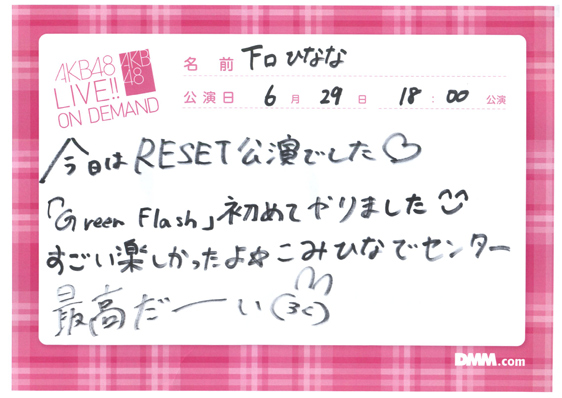 AKB48
LIVE!!
ON DEMAND
AKB
48
名 前 下口ひなな
公演日 6月29日 18:00公演
今日はRESET公演でした♡
「Green Flash」初めてやりました
すごい楽しかったよ☆こみひなでセンター
最高だーい(3c)
DMM.com